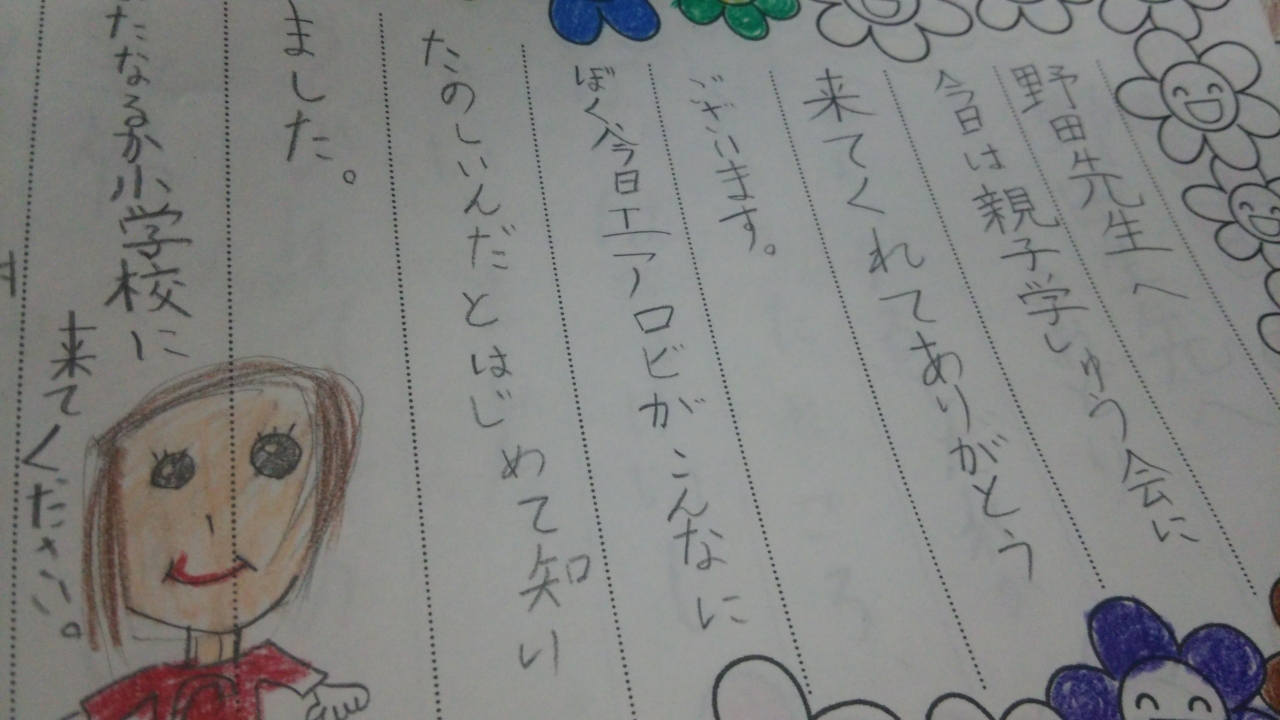 野田先生へ
今日は親子学しゅう会に
来てくれてありがとう
ございます。
ぼく今日エアロビがこんなに
たのしいんだとはじめて知り
ました。
たなるか小学校に
来てください。